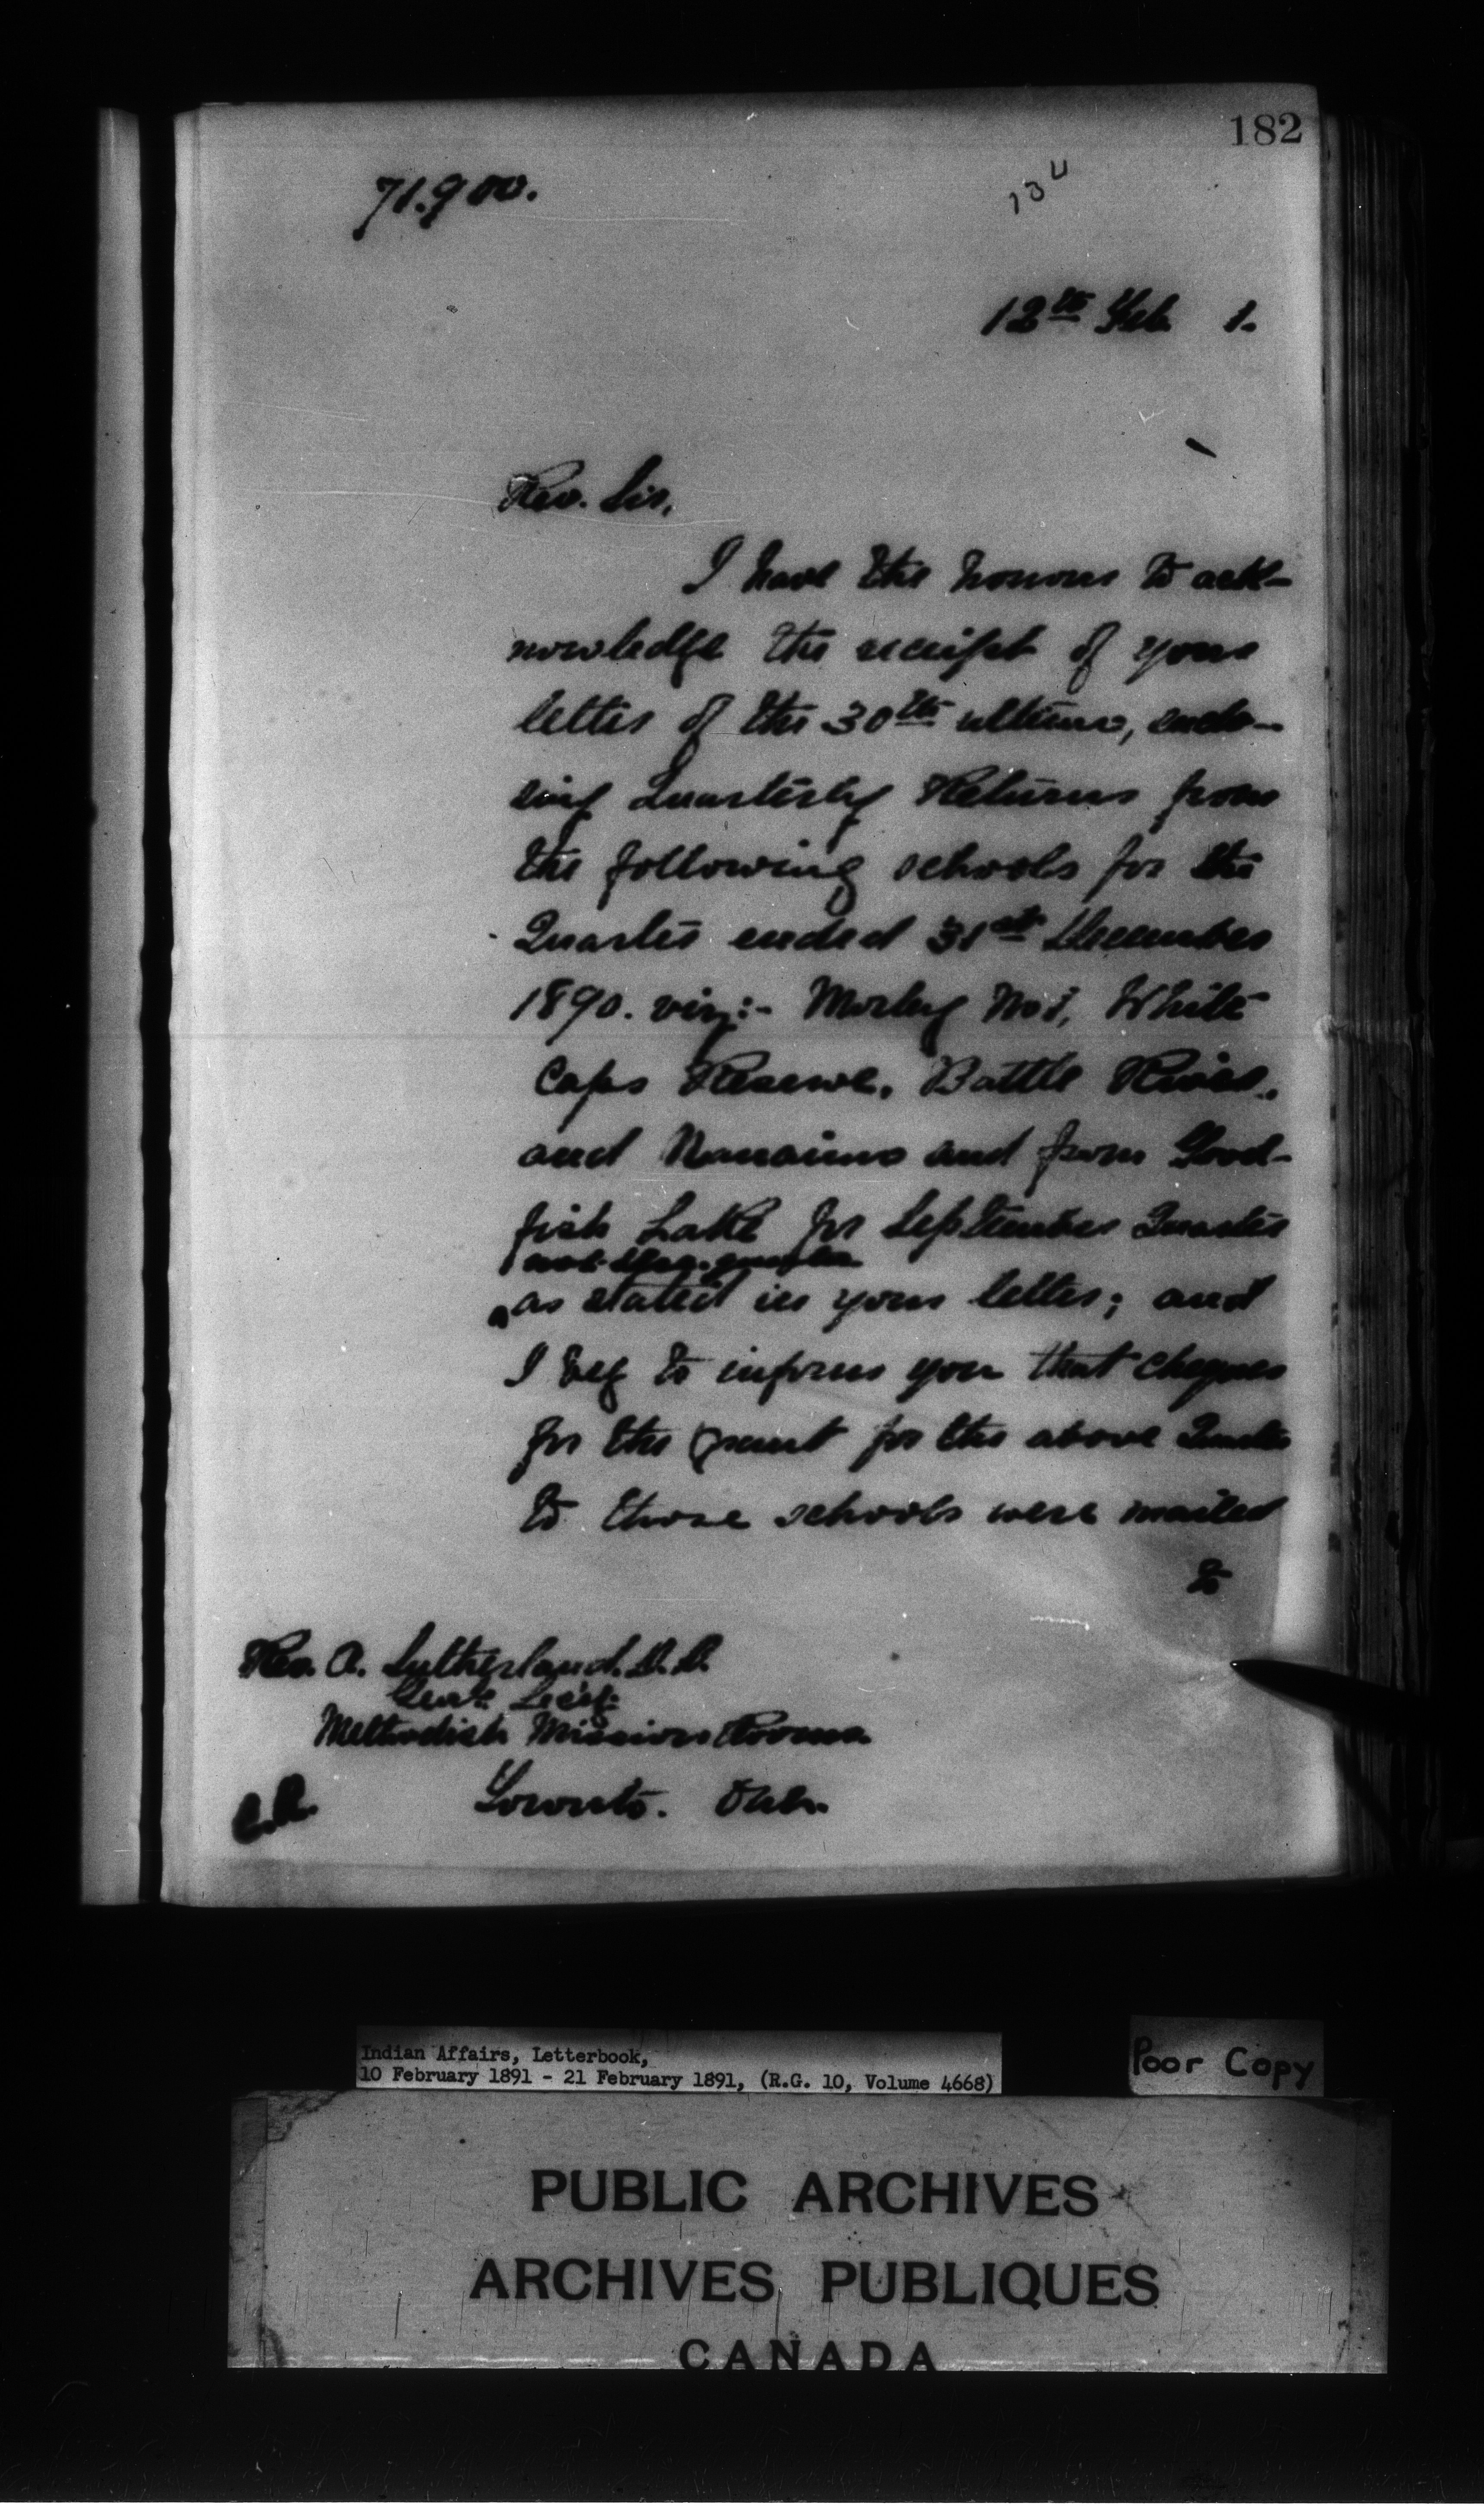 182
71.900.
12th Feb 1.
Rev. Sir,
I have the honour to ack-
nowledge the receipt of your
letter of the 30th ultimo, enclo-
sing Quarterly Returns from
the following schools for the
Quarter ended 31st December
1890. viz:- Morley No 1, White
Caps Reserve, Battle River,
and Nanaimo and from Good-
fish Lake for September Quarter
not Dec. quarter
as stated in your letter; and
I beg to inform you that cheques
for the grant for the above Quarter
to those schools were mailed
to
Rev. A. Sutherland. D.D.
Genl. Secy.
Methodist Mission Rooms
Toronto. Ont.
Indian Affairs, Letterbook,
10 February 1891 - 21 February 1891, (R.G. 10, Volume 4668)
Poor Copy
PUBLIC ARCHIVES
ARCHIVES PUBLIQUES
CANADA